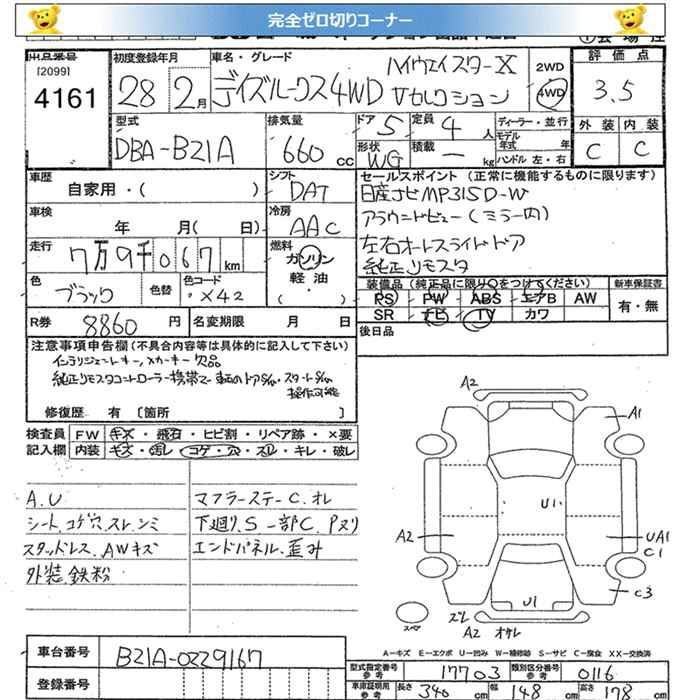 完全ゼロ切りコーナー
出品番号
[2099]
4161
初度登録年月
28年 2月
車名・グレード
デイズルークス4WD ハイウェイスターX Vセレクション
2WD
4WD
評価点
3.5
外装 内装
C C
型式
DBA-BZ1A
排気量
660 cc
ドア 5
形状 WG
定員 4 人
積載 - kg
ディーラー・並行
モデル年式 年
ハンドル 左・右
車歴
自家用・( )
シフト
DAT
車検
年 月( 日)
冷房
AAC
走行
7万9千067 km
燃料
ガソリン
軽油
・( )
色
ブラック
色替
色コード
・X42
R券 8860 円
名変期限 月 日
セールスポイント(正常に機能するものに限ります)
日産ナビMP315D-W
アラウンドビュー(ミラー内)
左右オートスライドドア
純正リモスタ
装備品(純正品に限り○をつけてください)
PS PW ABS エアB AW
SR ナビ TV カワ
新車保証書
有・無
後日品
注意事項申告欄(不具合内容等は具体的に記入して下さい)
インテリジェントキー、メカキー欠品
純正リモスタコントローラー携帯で
操作可能
修復歴 有 [箇所 ]
検査員記入欄
FW キズ・飛石・ヒビ割・リペア跡・×要
内装 キズ・汚レ・コゲ・穴・スレ・キレ・破レ
A.U
シート、コゲ穴、スレ、シミ
スタッドレス、AWキズ
外装、鉄粉
マフラーステーC、オレ
下廻り、S一部C、Pヌリ
エンドパネル、歪み
A2
A1
U1
A2
UA1
C1
C3
U1
スレ
A2 オサレ
スペア
A-キズ E-エクボ U-凹み W-補修跡 S-サビ C-腐食 XX-交換済
車台番号 BZ1A-0229167
登録番号
型式指定番号 参考 17703
類別区分番号 参考 0116
車庫証明用 参考
長さ 340 cm
幅 148 cm
高さ 178 cm